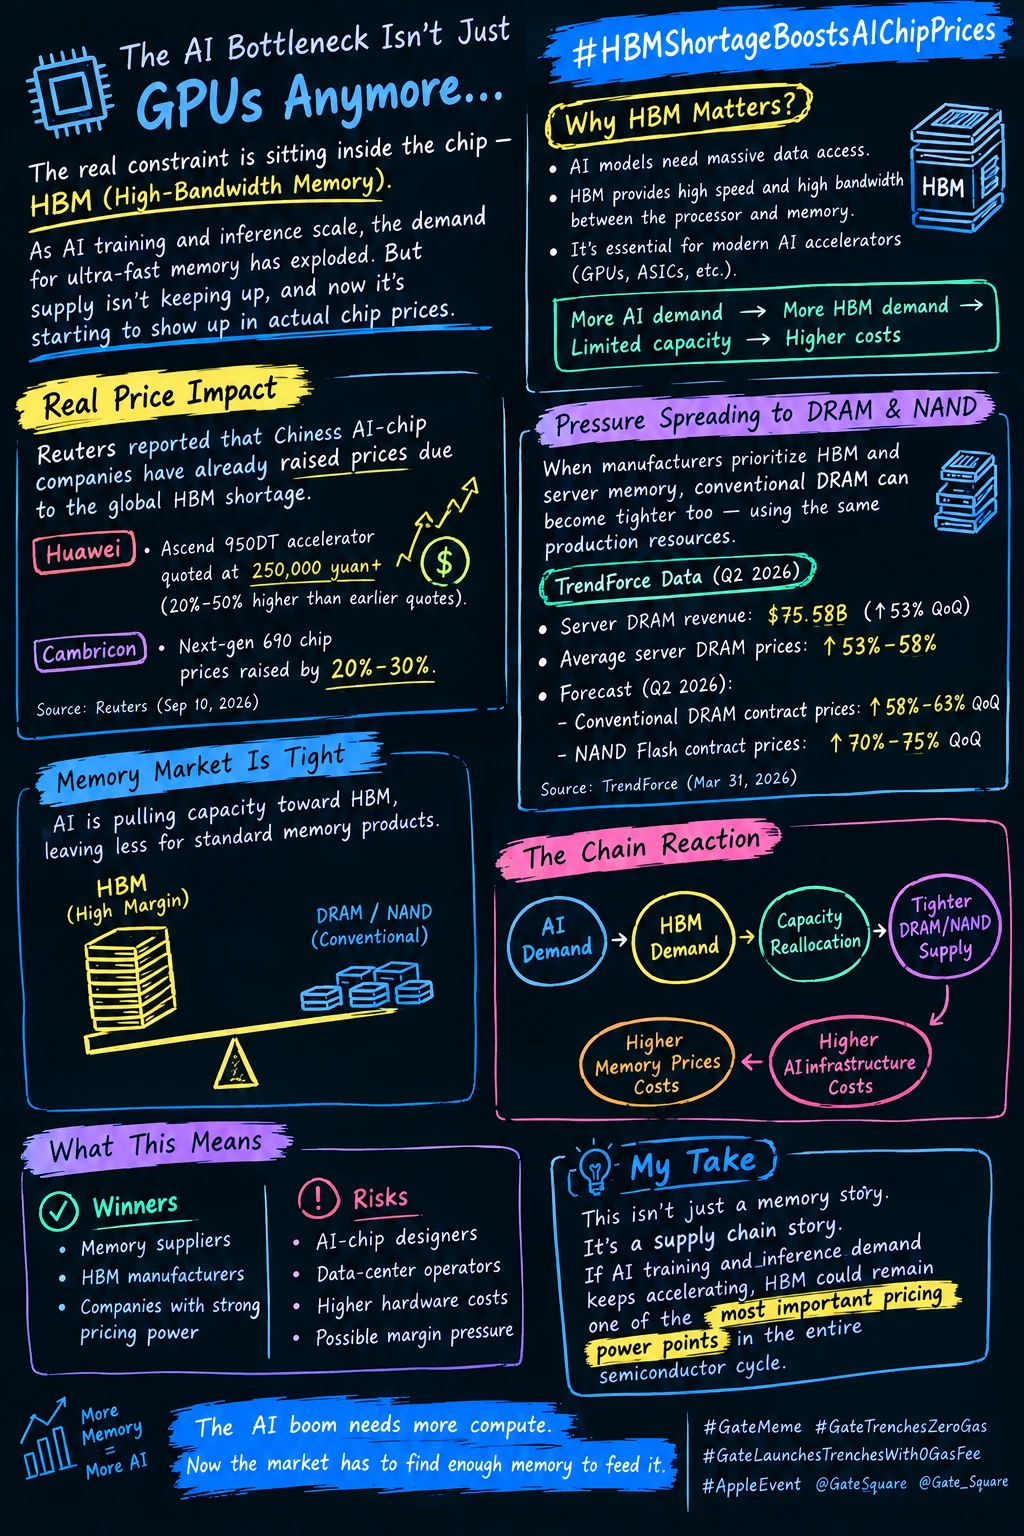 The AI Bottleneck Isn't Just
GPUs Anymore...
The real constraint is sitting inside the chip —
HBM (High-Bandwidth Memory).
As AI training and inference scale, the demand
for ultra-fast memory has exploded. But
supply isn't keeping up, and now it's
starting to show up in actual chip prices.
#HBMShortageBoostsAIChipPrices
Why HBM Matters?
• AI models need massive data access.
• HBM provides high speed and high bandwidth
between the processor and memory.
• It's essential for modern AI accelerators
(GPUs, ASICs, etc.).
HBM
More AI demand → More HBM demand →
Limited capacity → Higher costs
Real Price Impact
Reuters reported that Chinese AI-chip
companies have already raised prices due
to the global HBM shortage.
Huawei
• Ascend 950DT accelerator
quoted at 250,000 yuan+
(20%-50% higher than earlier quotes).
$
Cambricon
• Next-gen 690 chip
prices raised by 20%-30%.
Source: Reuters (Sep 10, 2026)
Pressure Spreading to DRAM & NAND
When manufacturers prioritize HBM and
server memory, conventional DRAM can
become tighter too — using the same
production resources.
TrendForce Data (Q2 2026)
• Server DRAM revenue: $75.58B (↑53% QoQ)
• Average server DRAM prices: ↑53%-58%
• Forecast (Q2 2026):
- Conventional DRAM contract prices: ↑58%-63% QoQ
- NAND Flash contract prices: ↑70%-75% QoQ
Source: TrendForce (Mar 31, 2026)
Memory Market Is Tight
AI is pulling capacity toward HBM,
leaving less for standard memory products.
HBM
(High Margin)
DRAM / NAND
(Conventional)
The Chain Reaction
AI
Demand
→
HBM
Demand
→
Capacity
Reallocation
→
Tighter
DRAM/NAND
Supply
Higher
AI infrastructure
Costs
←
Higher
Memory Prices
Costs
What This Means
Winners
• Memory suppliers
• HBM manufacturers
• Companies with strong
pricing power
Risks
• AI-chip designers
• Data-center operators
• Higher hardware costs
• Possible margin pressure
My Take
This isn't just a memory story.
It's a supply chain story.
If AI training and inference demand
keeps accelerating, HBM could remain
one of the most important pricing
power points in the entire
semiconductor cycle.
More
Memory
=
More AI
The AI boom needs more compute.
Now the market has to find enough memory to feed it.
#GateMeme #GateTrenchesZeroGas
#GateLaunchesTrenchesWith0GasFee
#AppleEvent @GateSquare @Gate_Square